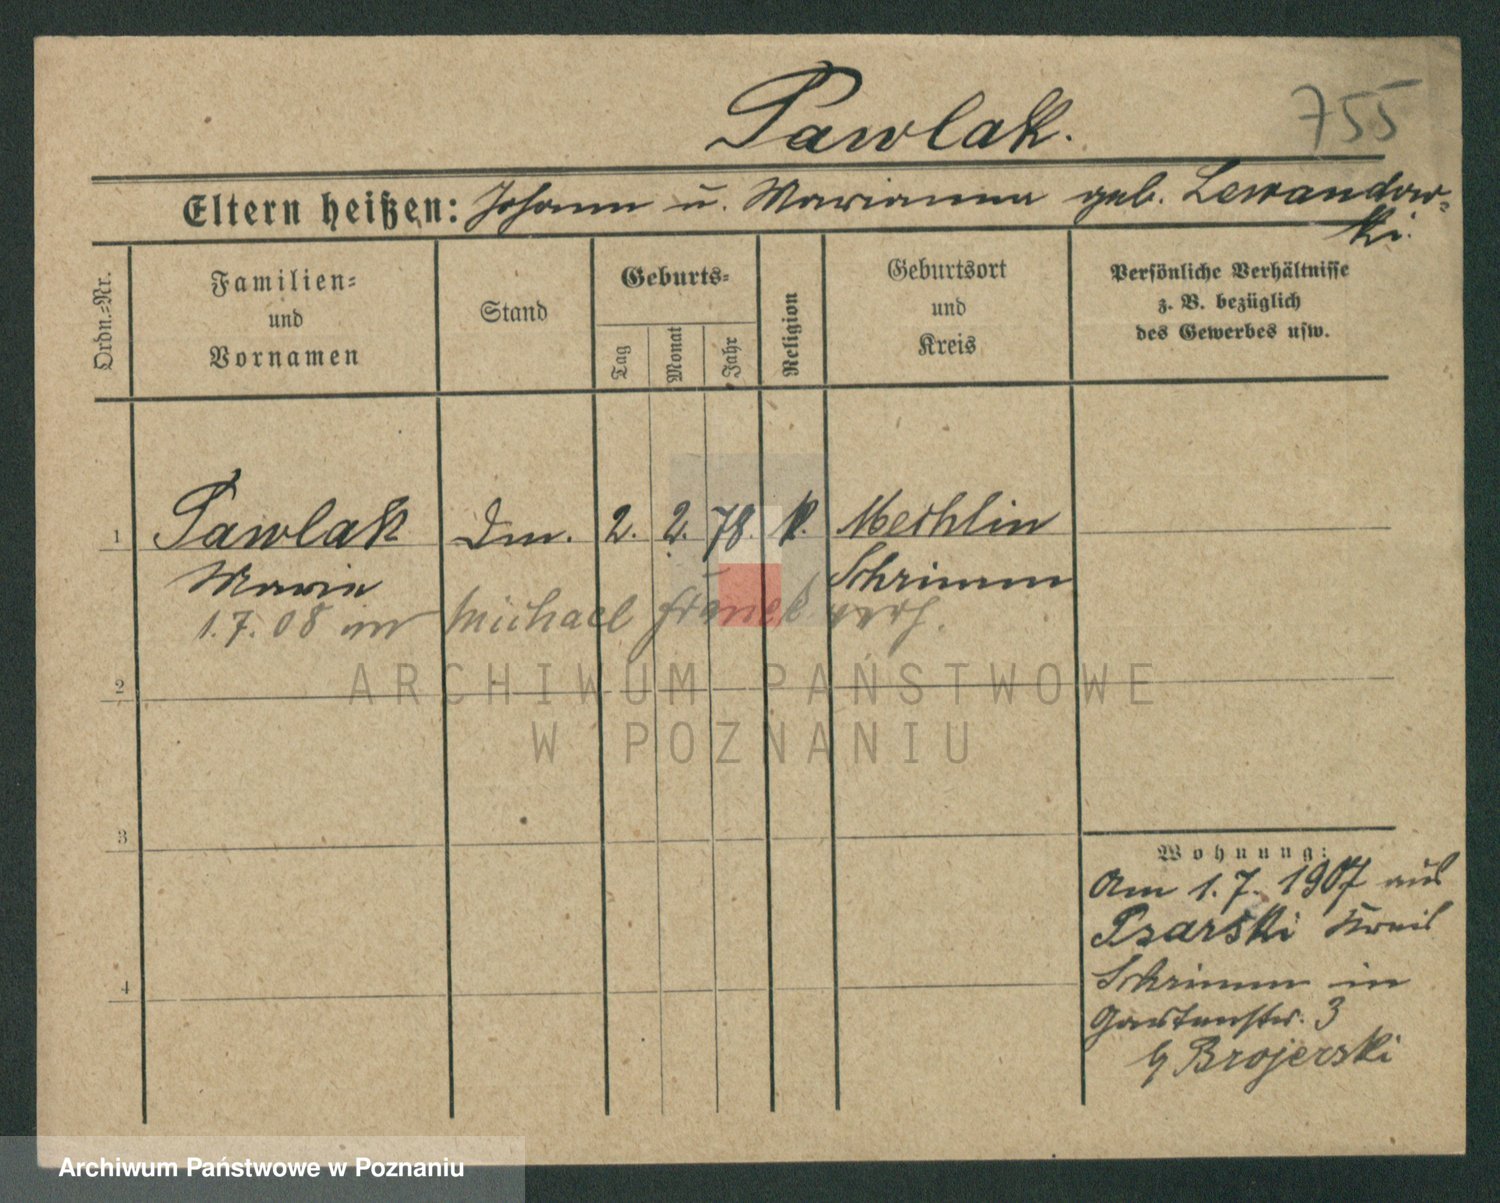 Pawlak.
755
Eltern heißen: Johann u. Marianna geb. Lewandow-
ski.
Ordn.=Nr.
Familien=
und
Vornamen
Stand
Geburts=
Tag
Monat
Jahr
Religion
Geburtsort
und
Kreis
Persönliche Verhältnisse
z. B. bezüglich
des Gewerbes usw.
1 Pawlak Dm. 2. 2. 78. k. Mechlin
Marie Schrimm
1.7.08 an Michael Franek verh.
2
3
4
Wohnung:
Am 1.7.1907 aus
Psarski Kreis
Schrimm in
Gartenstr. 3
b/ Brojerski
ARCHIWUM PAŃSTWOWE
W POZNANIU
Archiwum Państwowe w Poznaniu